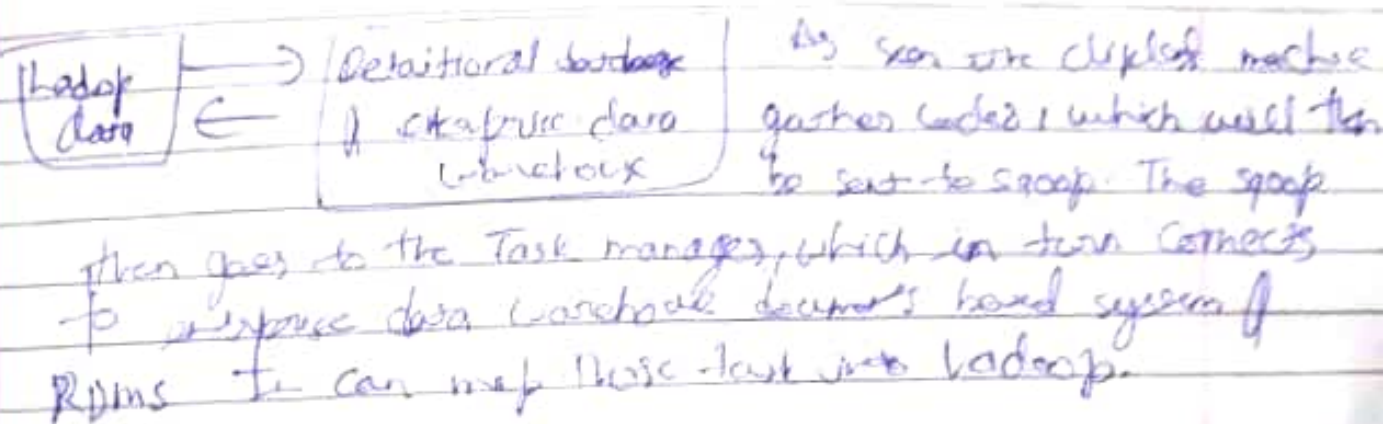 Hadop
data
Relaitional database
enterprise data
warehouse
As soon the client machine
gather codes, which will then
be sent to sqoop. The sqoop
then goes to the Task manager, which in turn connects
to enterprise data warehouse documents based system
RDMS It can map these task into hadoop.